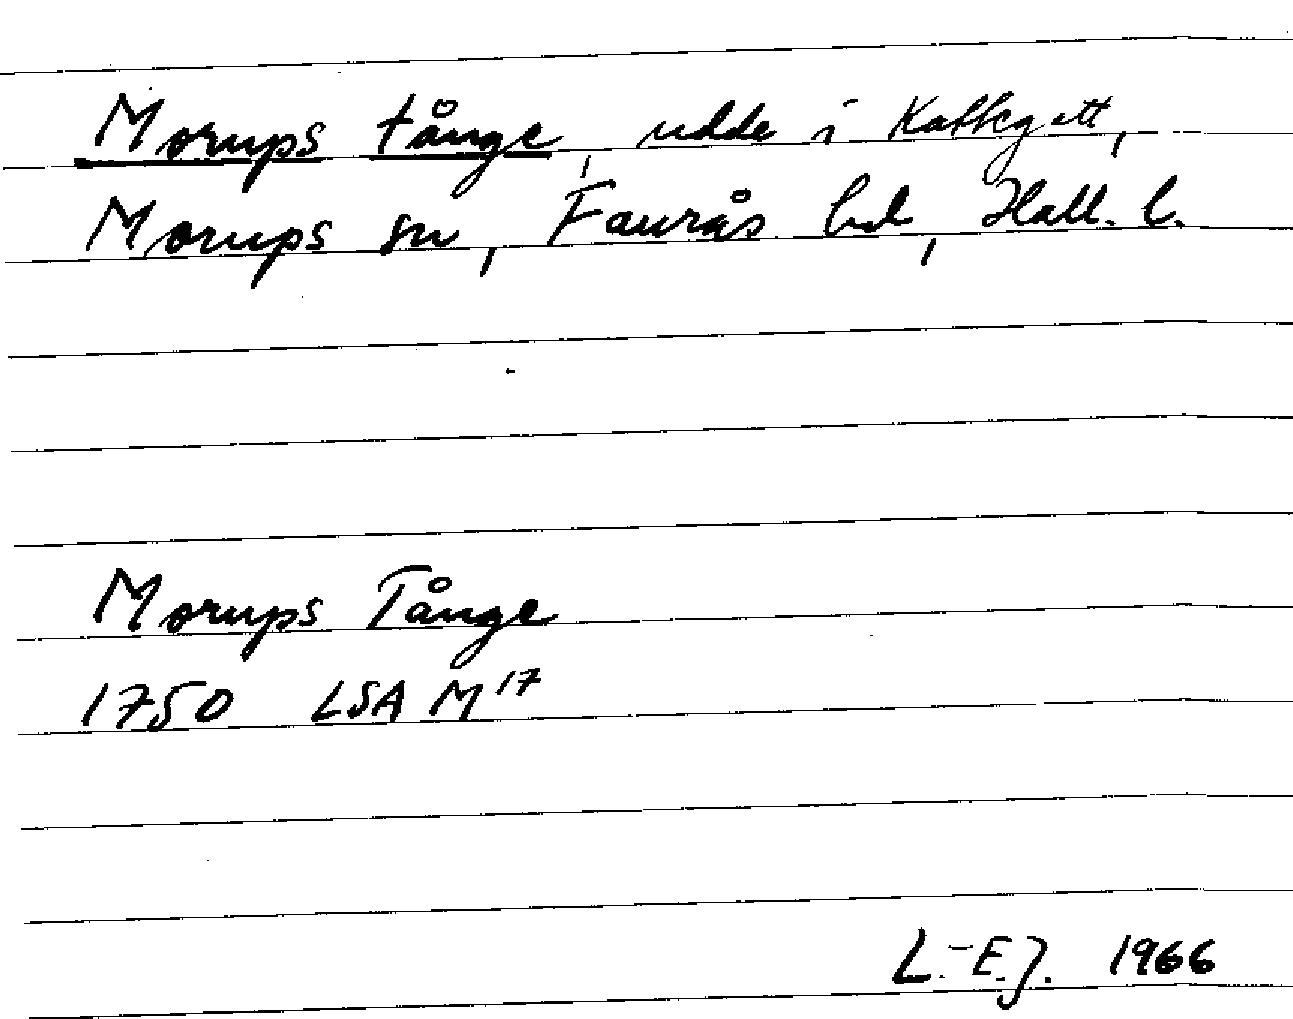 Morups tånge, udde i Kattegatt,
Morups sn, Faurås hd, Hall. l.
Morups Tånge
1750 LSA M 17
L.-E.J. 1966